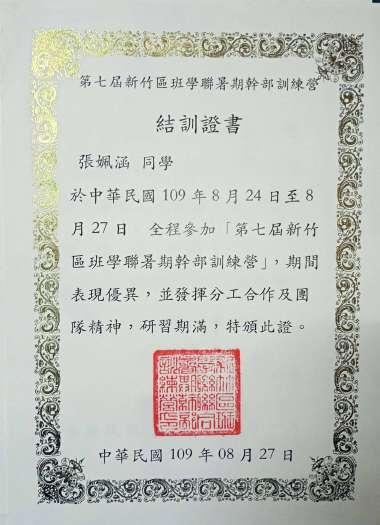 第七屆新竹區班學聯暑期幹部訓練營
結訓證書
張姵涵 同學
於中華民國 109 年 8 月 24 日至 8
月 27 日 全程參加「第七屆新竹
區班學聯暑期幹部訓練營」，期間
表現優異，並發揮分工合作及團
隊精神，研習期滿，特頒此證。
中華民國 109 年 08 月 27 日